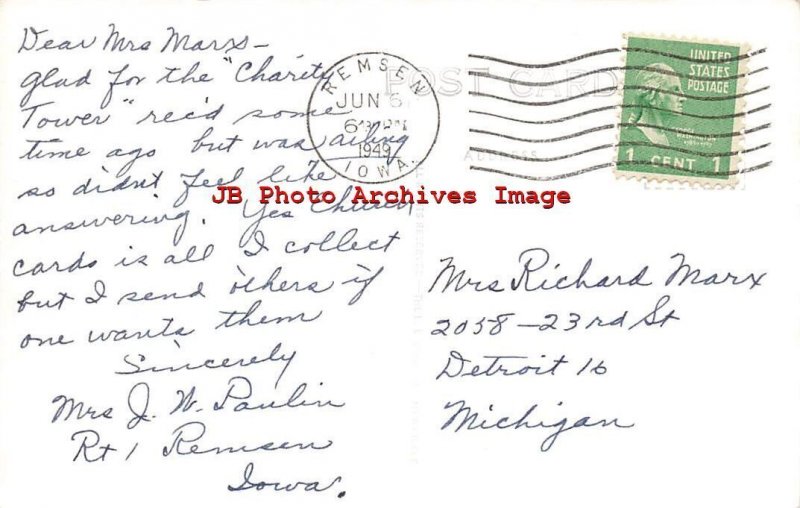 Dear Mrs Marx-
glad for the "Charity
Tower" rec'd some
time ago but was ailing
so didn't feel like
answering. Yes Church
cards is all I collect
but I send others if
one wants them
Sincerely
Mrs J. W. Paulin
Rt 1 Remsen
Iowa.
REMSEN
JUN 6
1949
IOWA.
POST CARD
ADDRESS
UNITED
STATES
POSTAGE
1 CENT 1
JB Photo Archives Image
Mrs Richard Marx
2058-23rd St
Detroit 16
Michigan